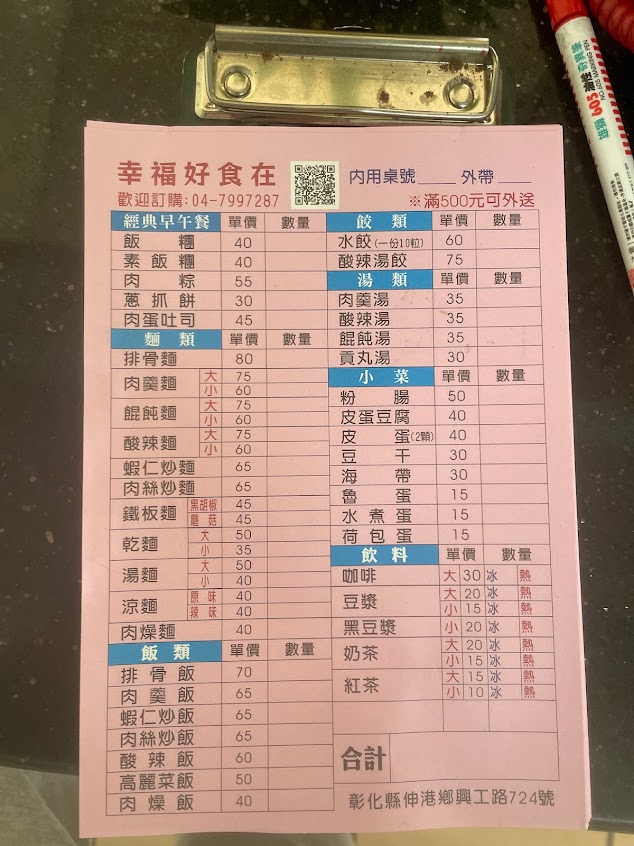 幸福好食在
內用桌號 外帶
歡迎訂購:04-7997287
※滿500元可外送
經典早午餐 單價 數量
飯糰 40
素飯糰 40
肉粽 55
蔥抓餅 30
肉蛋吐司 45
麵類 單價 數量
排骨麵 80
肉羹麵 大 75
小 60
餛飩麵 大 75
小 60
酸辣麵 大 75
小 60
蝦仁炒麵 65
肉絲炒麵 65
鐵板麵 黑胡椒 45
蘑菇 45
乾麵 大 50
小 35
湯麵 大 50
小 40
涼麵 原味 40
辣味 40
肉燥麵 40
飯類 單價 數量
排骨飯 70
肉羹飯 65
蝦仁炒飯 65
肉絲炒飯 65
酸辣飯 60
高麗菜飯 50
肉燥飯 40
餃類 單價 數量
水餃(一份10粒) 60
酸辣湯餃 75
湯類 單價 數量
肉羹湯 35
酸辣湯 35
餛飩湯 35
貢丸湯 30
小菜 單價 數量
粉腸 50
皮蛋豆腐 40
皮蛋(2顆) 40
豆干 30
海帶 30
魯蛋 15
水煮蛋 15
荷包蛋 15
飲料 單價 數量
咖啡 大 30 冰 熱
豆漿 大 20 冰 熱
小 15 冰 熱
黑豆漿 小 20 冰 熱
奶茶 大 20 冰 熱
小 15 冰 熱
紅茶 大 15 冰 熱
小 10 冰 熱
合計
彰化縣伸港鄉興工路724號